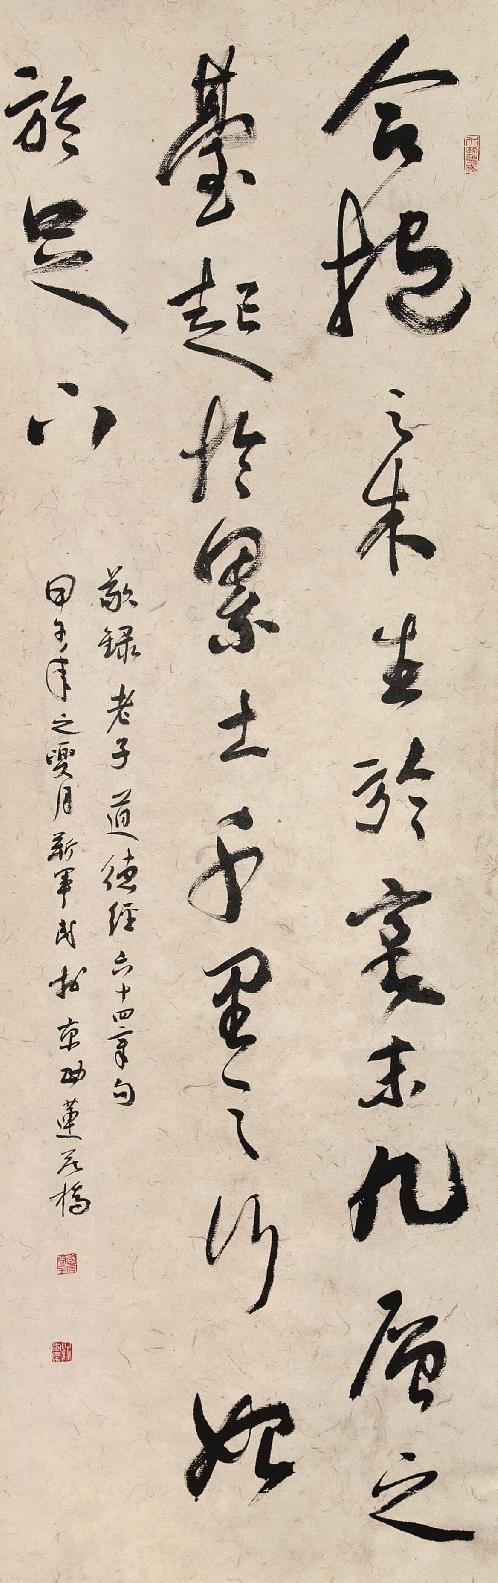 合抱之木生於毫末九層之
臺起於累土千里之行始
於足下
敬録老子道德經六十四章句
甲午年之雯月靳軍民於京西蓮花橋